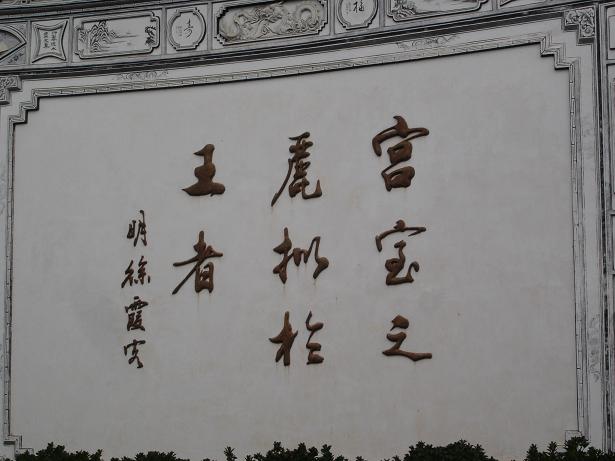 宫室之
麗拟於
王者
明徐霞客
福